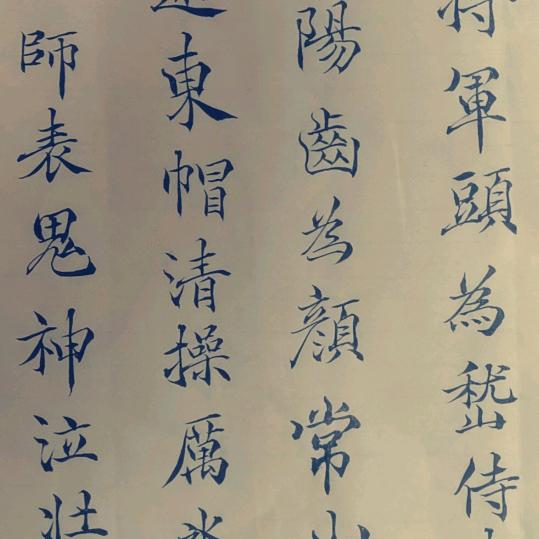 將軍頭為嵇侍
陽齒為顏常山
遼東帽清操厲冰
師表鬼神泣壯